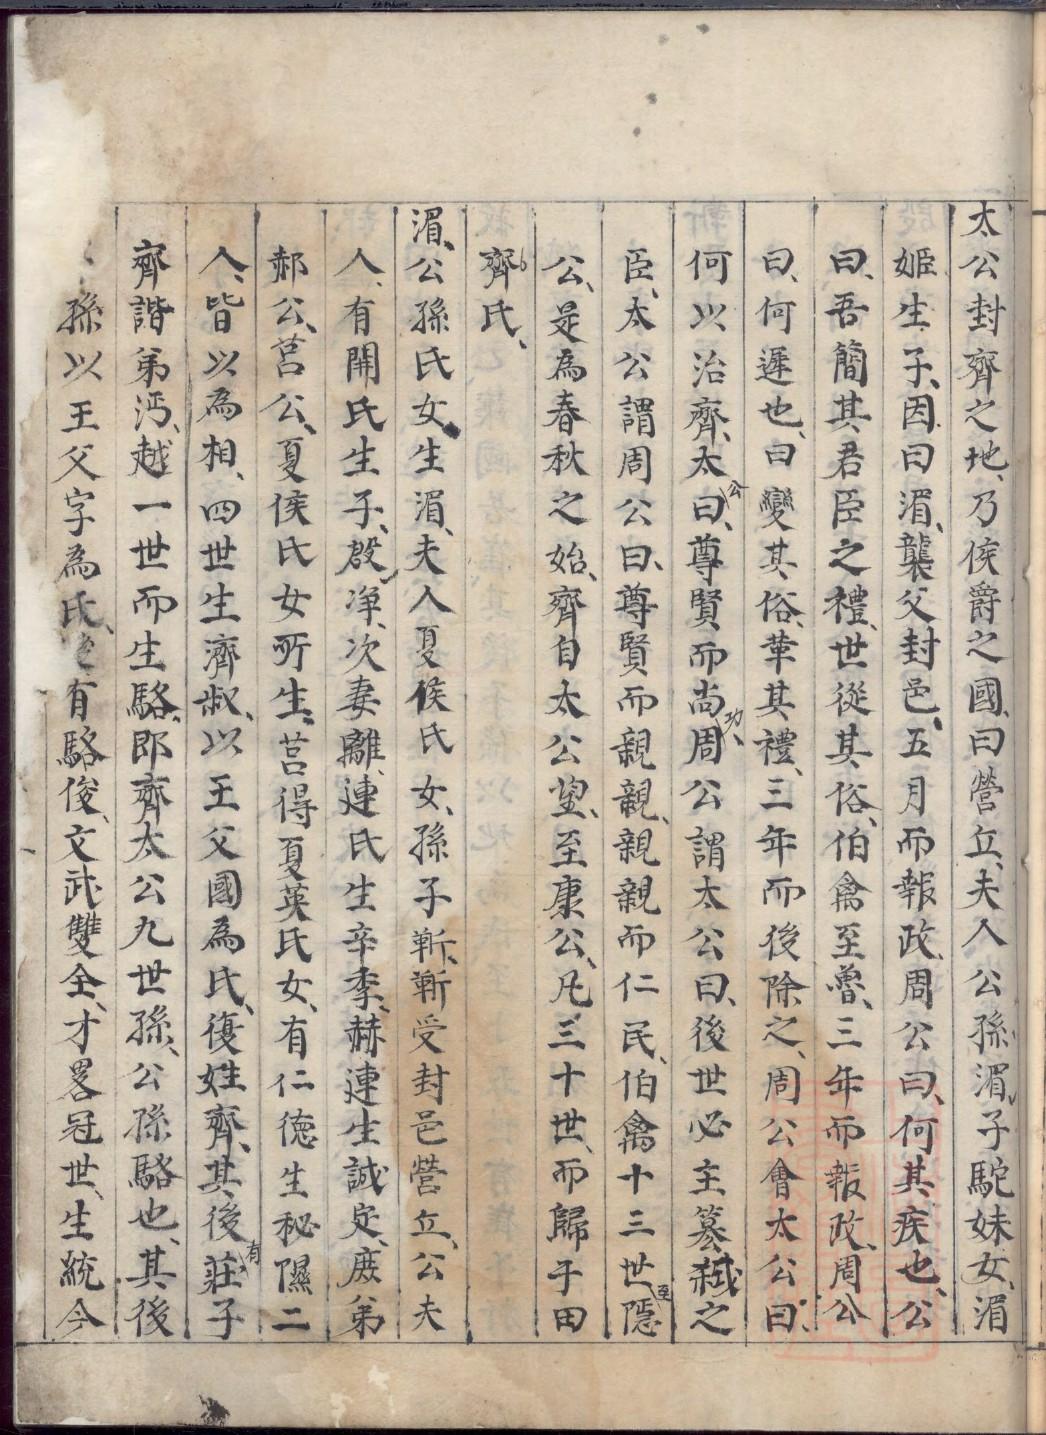 太公封齊之地、乃侯爵之國、曰營丘、夫人公孫湄、子駝妹女、湄
姬生子、因曰湄、襲父封邑、五月而報政、周公曰、何其疾也、公
曰、吾簡其君臣之禮、世從其俗、伯禽至魯、三年而報政、周公
曰、何遲也、曰變其俗、革其禮、三年而後除之、周公會太公曰、
何以治齊、太公曰、尊賢而尚功、周公謂太公曰、後世必主篡弒之
臣、太公謂周公曰、尊賢而親親、親親而仁民、伯禽十三世至隱
公、是為春秋之始、齊自太公望、至康公、凡三十世、而歸于田
齊氏、
湄、公孫氏女、生湄、夫人夏侯氏女、孫子蘄、蘄受封邑營丘、公夫
人、有開氏生子、殷凈、次妻離連氏生辛季、赫連生誠定、庶弟
郝公、莒公、夏侯氏女所生、莒得夏英氏女、有仁德生秘隰二
人、皆以為相、四世生濟叔、以王父國為氏、復姓齊、其後有莊子
齊諧弟沔、越一世而生駱、即齊太公九世孫、公孫駱也、其後
孫以王父字為氏、後有駱俊、文武雙全、才畧冠世、生統今